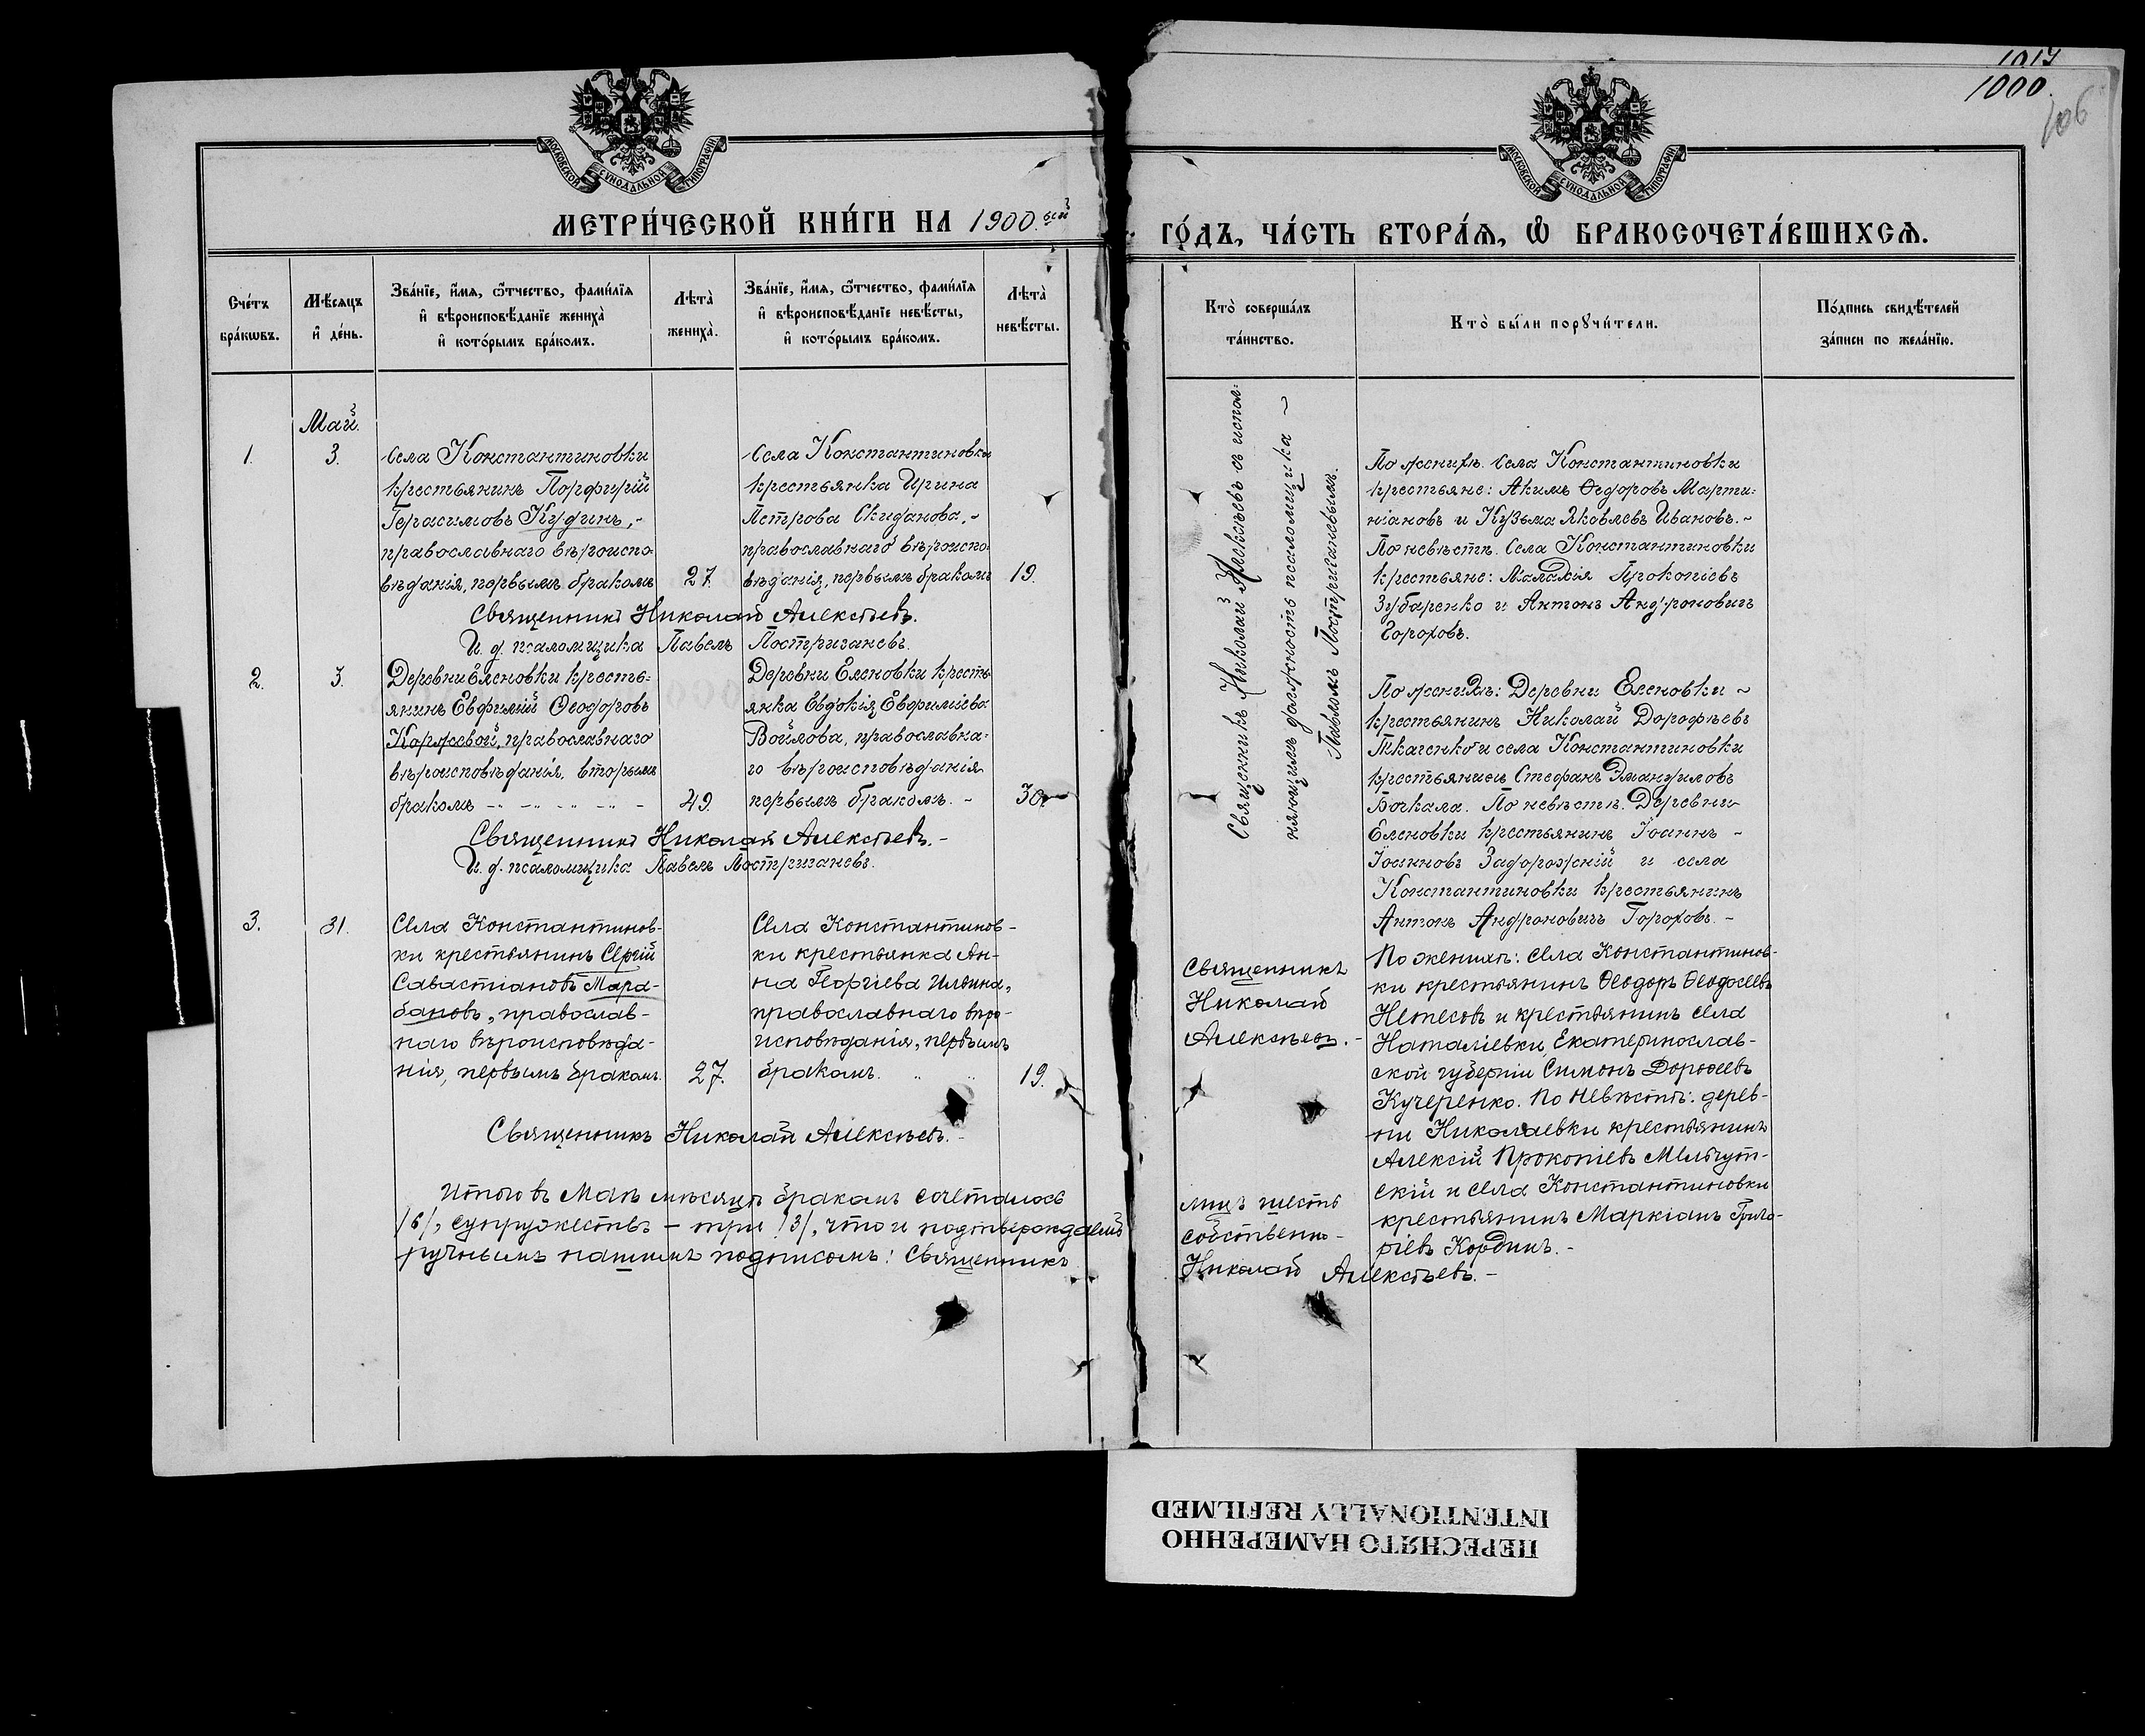 1017
1000.
106
МОСКОВСКОЙ СУНОДАЛЬНОЙ ТИПОГРАФІИ
МОСКОВСКОЙ СУНОДАЛЬНОЙ ТИПОГРАФІИ
МЕТРИ́ЧЕСКОЙ КНИ́ГИ НА 1900.ый
ГО́ДЪ, ЧА́СТЬ ВТОРА́Я, Ѡ БРАКОСОЧЕТА́ВШИХСЯ.
Сче́тъ бра́кѡвъ.
Мѣ́сяцъ и҆ де́нь.
Зва́нїе, и҆́мя, ѻ҆́тчество, фами́лїя
и҆ вѣроисповѣ́данїе жениха̀
и҆ кото́рымъ бра́комъ.
Лѣта̀ жениха̀.
Зва́нїе, и҆́мя, ѻ҆́тчество, фами́лїя
и҆ вѣроисповѣ́данїе невѣ́сты,
и҆ кото́рымъ бра́комъ.
Лѣта̀ невѣ́сты.
Кто̀ соверша́лъ
та́инство.
Кто̀ бы́ли порꙋчи́тели.
По́дпись свидѣ́телей
за́писи по жела́нїю.
Май.
1.
3.
Села Константиновки
крестьянинъ Порфирій
Герасимовъ Кудинъ,
православнаго вѣроиспо-
вѣданія, первымъ бракомъ
27.
Села Константиновки
крестьянка Ирина
Петрова Скиданова,
православнаго вѣроиспо-
вѣданія, первымъ бракомъ
19.
Священникъ Николай Алексѣевъ.
И. д. псаломщика Павелъ Постригачевъ.
Священникъ Николай Алексѣевъ съ испол-
няющимъ должность псаломщика
Павломъ Постригачевымъ.
По женихѣ. Села Константиновки
крестьяне: Акимъ Ѳедоровъ Марти-
ніановъ и Кузьма Яковлевъ Ивановъ.
По невѣстѣ. Села Константиновки
крестьяне: Малахія Прокопіевъ
Зубаренко и Антонъ Андроновичъ
Гороховъ.
2.
3.
Деревни Еленовки кресть-
янинъ Евфимій Ѳеодоровъ
Коржевой, православнаго
вѣроисповѣданія, вторымъ
бракомъ
49.
Деревни Еленовки кресть-
янка Евдокія Евфиміева
Войлова, православна-
го вѣроисповѣданія
первымъ бракомъ.
30.
Священникъ Николай Алексѣевъ.
И. д. псаломщика Павелъ Постригачевъ.
По женихѣ: Деревни Еленовки
крестьянинъ Николай Дорофѣевъ
Ткаченко и села Константиновки
крестьянинъ Стефанъ
Бочкала. По невѣстѣ. Деревни
Еленовки крестьянинъ Іоаннъ
Іоанновъ Задорожній и села
Константиновки крестьянинъ
Антонъ Андроновичъ Гороховъ.
3.
31.
Села Константинов-
ки крестьянинъ Сергій
Савастіановъ Мара-
бановъ, православ-
наго вѣроисповѣда-
нія, первымъ бракомъ.
27.
Села Константинов-
ки крестьянка Ан-
на Георгіева Ильина,
православнаго вѣро-
исповѣданія, первымъ
бракомъ.
19.
Священникъ
Николай
Алексѣевъ.
По женихѣ: села Константинов-
ки крестьянинъ Ѳеодоръ Ѳеодосіевъ
и крестьянинъ села
Наталіевки, Екатеринослав-
ской губерніи Симонъ
Кучеренко. По невѣстѣ: дерев-
ни Николаевки крестьянинъ
Алексій Прокопіевъ
и села Константиновки
крестьянинъ Маркіанъ Григо-
ріевъ Кординъ.
Священникъ Николай Алексѣевъ.
Итого въ Маѣ мѣсяцѣ бракомъ сочеталось лицъ шесть
/6/, супружествъ - три /3/, что и подтверждаемъ собственно-
ручнымъ нашимъ подписомъ: Священникъ Николай Алексѣевъ.
ПЕРЕСНЯТО НАМЕРЕННО
INTENTIONALLY REFILMED